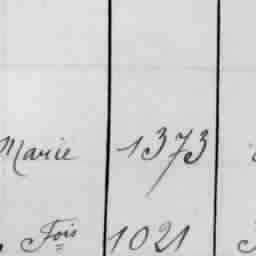 Marie 1373
Fois 1021